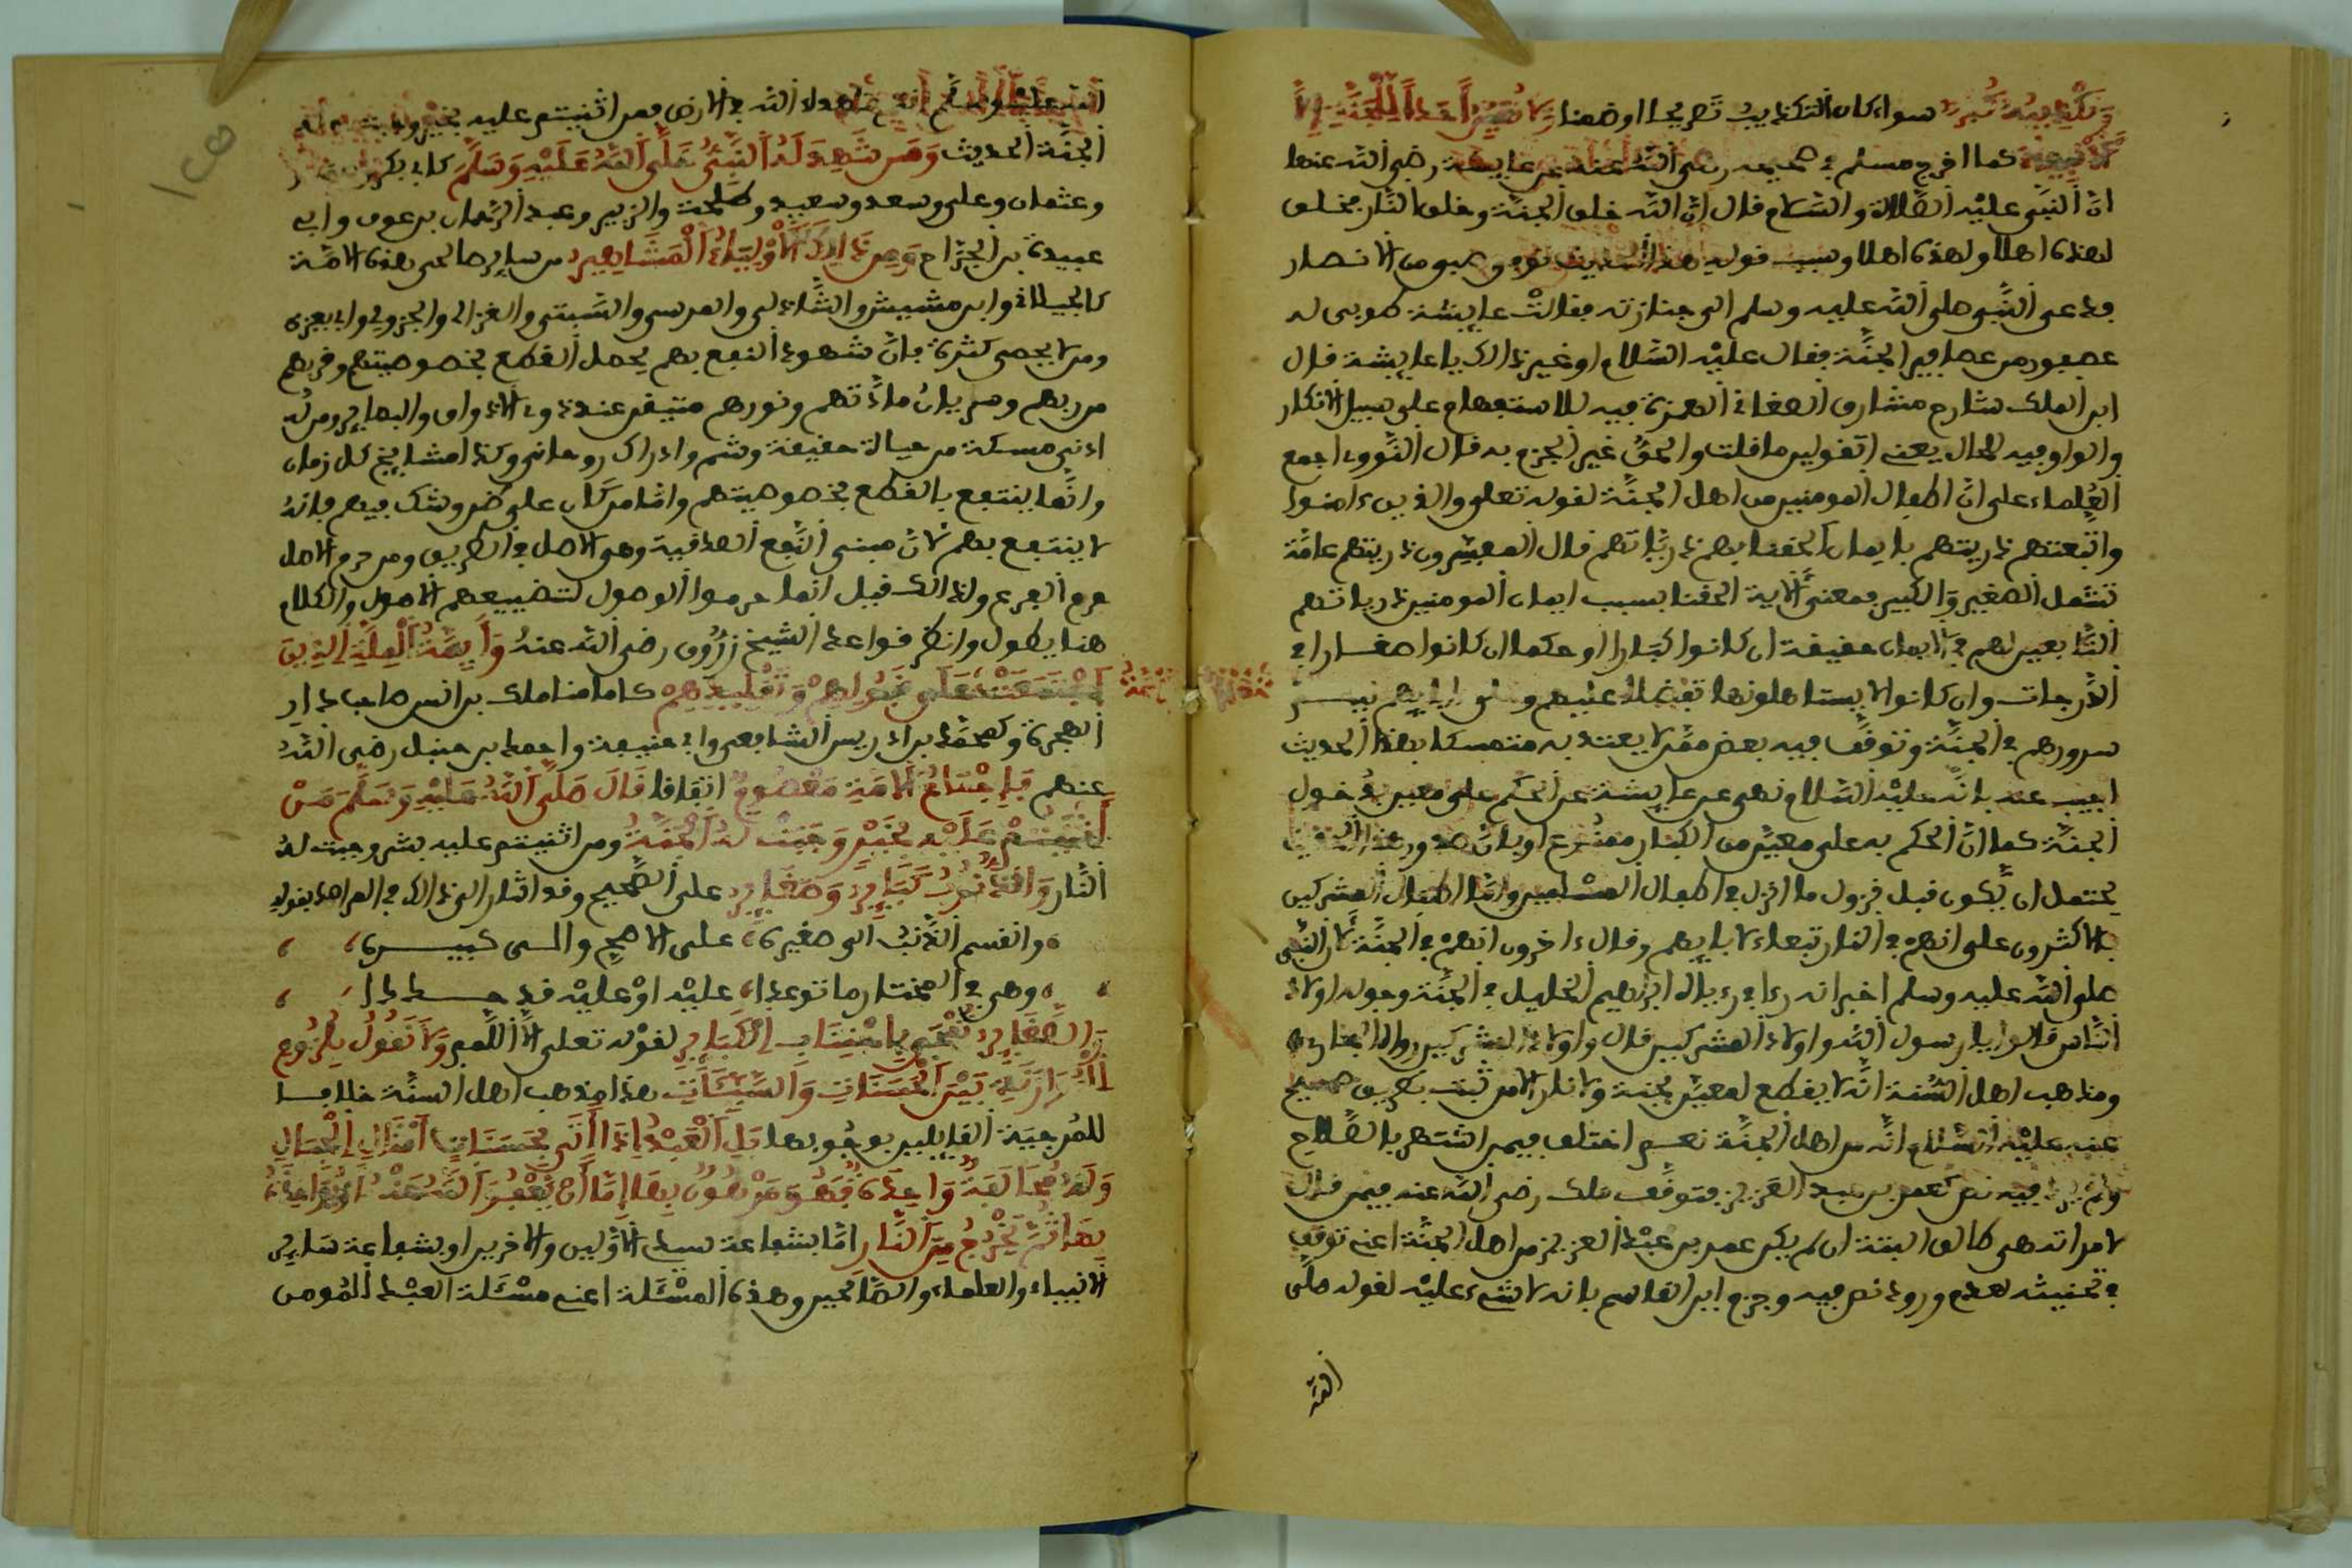 سواء كان التكذيب تصريحا او ضمنا
كما اخرج مسلم في صحيحه رضي الله عنه عن عايشة رضي الله عنها
ان النبي عليه الصلاة والسلام قال ان الله خلق الجنة وخلق النار فخلق
لهذه اهلا ولهذه اهلا وسبب قوله هذا الحديث توفي صبي من الانصار
فدعى النبي صلى الله عليه وسلم الى جنازته فقالت عايشة طوبى له
عصفور من عصافير الجنة فقال عليه السلام او غير ذالك يا عايشة قال
ابن الملك شارح مشارق الصغاني الهمزة فيه للاستفهام على سبيل الانكار
والواو فيه للحال يعني اتقولين ما قلت والحق غير الجزم به قال النووي اجمع
العلماء على ان اطفال المومنين من اهل الجنة لقوله تعلى والذين ءامنوا
واتبعتهم ذريتهم بايمان الحقنا بهم ذرياتهم قال المفسرون ذريتهم عامة
تشمل الصغير والكبير فمعنى الاية الحقنا بسبب ايمان المومنين ذرياتهم
التابعين لهم في الايمان حقيقة ان كانوا كبارا او حكما ان كانوا صغارا في
الدرجات وان كانوا لا يستاهلونها تفضلا عليهم وعلى ابايهم
سرورهم في الجنة وتوقف فيه بعض ممن لا يعتد به متمسكا بهذا الحديث
اجيب عنه بانه عليه السلام نهى عن عايشة عن الحكم على معين بدخول
الجنة كما ان الحكم به على معين من الكبار ممنوع او بان صدور هذا الحديث
يحتمل ان يكون قبل نزول ما انزل في اطفال المسلمين واما اطفال المشركين
فالاكثرون على انهم في النار تبعا لابايهم وقال ءاخرون انهم في الجنة لان النبي
صلى الله عليه وسلم اخبر انه رءا في رءياه ابراهيم الخليل في الجنة وحوله اولاد
الناس قالوا يا رسول الله واولاد المشركين قال واولاد المشركين رواه البخاري
ومذهب اهل السنة انه لا يقطع لمعين بجنة ولا نار الا من ثبت بطريق صحيح
عنه عليه السلام انه من اهل الجنة نعم اختلف فيمن اشتهر بالصلاح
ولم يرد فيه نص كعمر بن عبد العزيز فتوقف ملك رضي الله عنه فيمن قال
لامراته هي طالق البتة ان لم يكن عمر بن عبد العزيز من اهل الجنة اعني توقف
في تحنيثه لعدم ورود نص فيه وجزم ابن القاسم بانه لا شيء عليه لقوله صلى
الله
الله عليه وسلم انتم شهداء الله في الارض فمن اثنيتم عليه بخير وجبت له
الجنة الحديث ومن شهد له النبي صلى الله عليه وسلم كابي بكر وعمر
وعثمان وعلي وسعد وسعيد وطلحة والزبير وعبد الرحمان بن عوف وابي
عبيدة بن الجراح ومن ذالك الاولياء المشاهير من ساير صالحي هذه الامة
كالجيلاني وابن مشيش والشاذلي والمرسي والسبتي والغزالي والجزولي وابي يعزى
ومن لا يحصى كثرة فان شهود النفع بهم يحصل القطع بخصوصيتهم وقربهم
من ربهم ومن بان مادتهم ونورهم متيقن عند ذوي الاذواق والبصاير ومن له
ادنى مسكة من حياة حقيقة وشم وادراك روحاني وكذا مشايخ كل زمان
وانما ينتفع بالقطع بخصوصيتهم واما من كان على ظن وشك فيهم فانه
لا ينتفع بهم لان مبنى النفع الصدقية وهي الاصل في الطريق ومن حرم الاصل
حرم الفرع ولذالك قيل انما حرموا الوصول لتضييعهم الاصول والكلام
هنا يطول وانظر قواعد الشيخ زروق رضي الله عنه وايمة الملة الذين
اجتمعت على وتقليدهم كامامنا ملك بن انس صاحب دار
الهجرة ومحمد بن ادريس الشافعي وابي حنيفة واحمد بن حنبل رضي الله
عنهم فاجتماع الامة معصوم اتفاقا قال صلى الله عليه وسلم من
اثنيتم عليه بخير وجبت له الجنة ومن اثنيتم عليه بشر وجبت له
النار والذنوب كباير وصغاير على الصحيح وقد اشار الى ذالك في المراصد بقوله
وانقسم الذنب الى صغيرة، على الاصح والى كبيرة،
وهي في المختار ما توعدا، عليه او عليه قد حددا
والصغاير تمحى باجتناب الكباير لقوله تعلى الا اللمم ولا نقول بلزوم
الموازنة بين الحسنات والسيئات هذا مذهب اهل السنة خلافا
للمرجية القايلين بوجوبها بل العبد اذا اتى بحسنات امثال الجبال
وله مخالفة واحدة فهو مرهون بها اما ان يغفر الله عنه او يواخذه
بها ثم يخرج من النار اما بشفاعة سيد الاولين والاخرين او بشفاعة ساير
الانبياء والعلماء والصالحين وهذه المسئلة اعني مسئلة العبد المومن